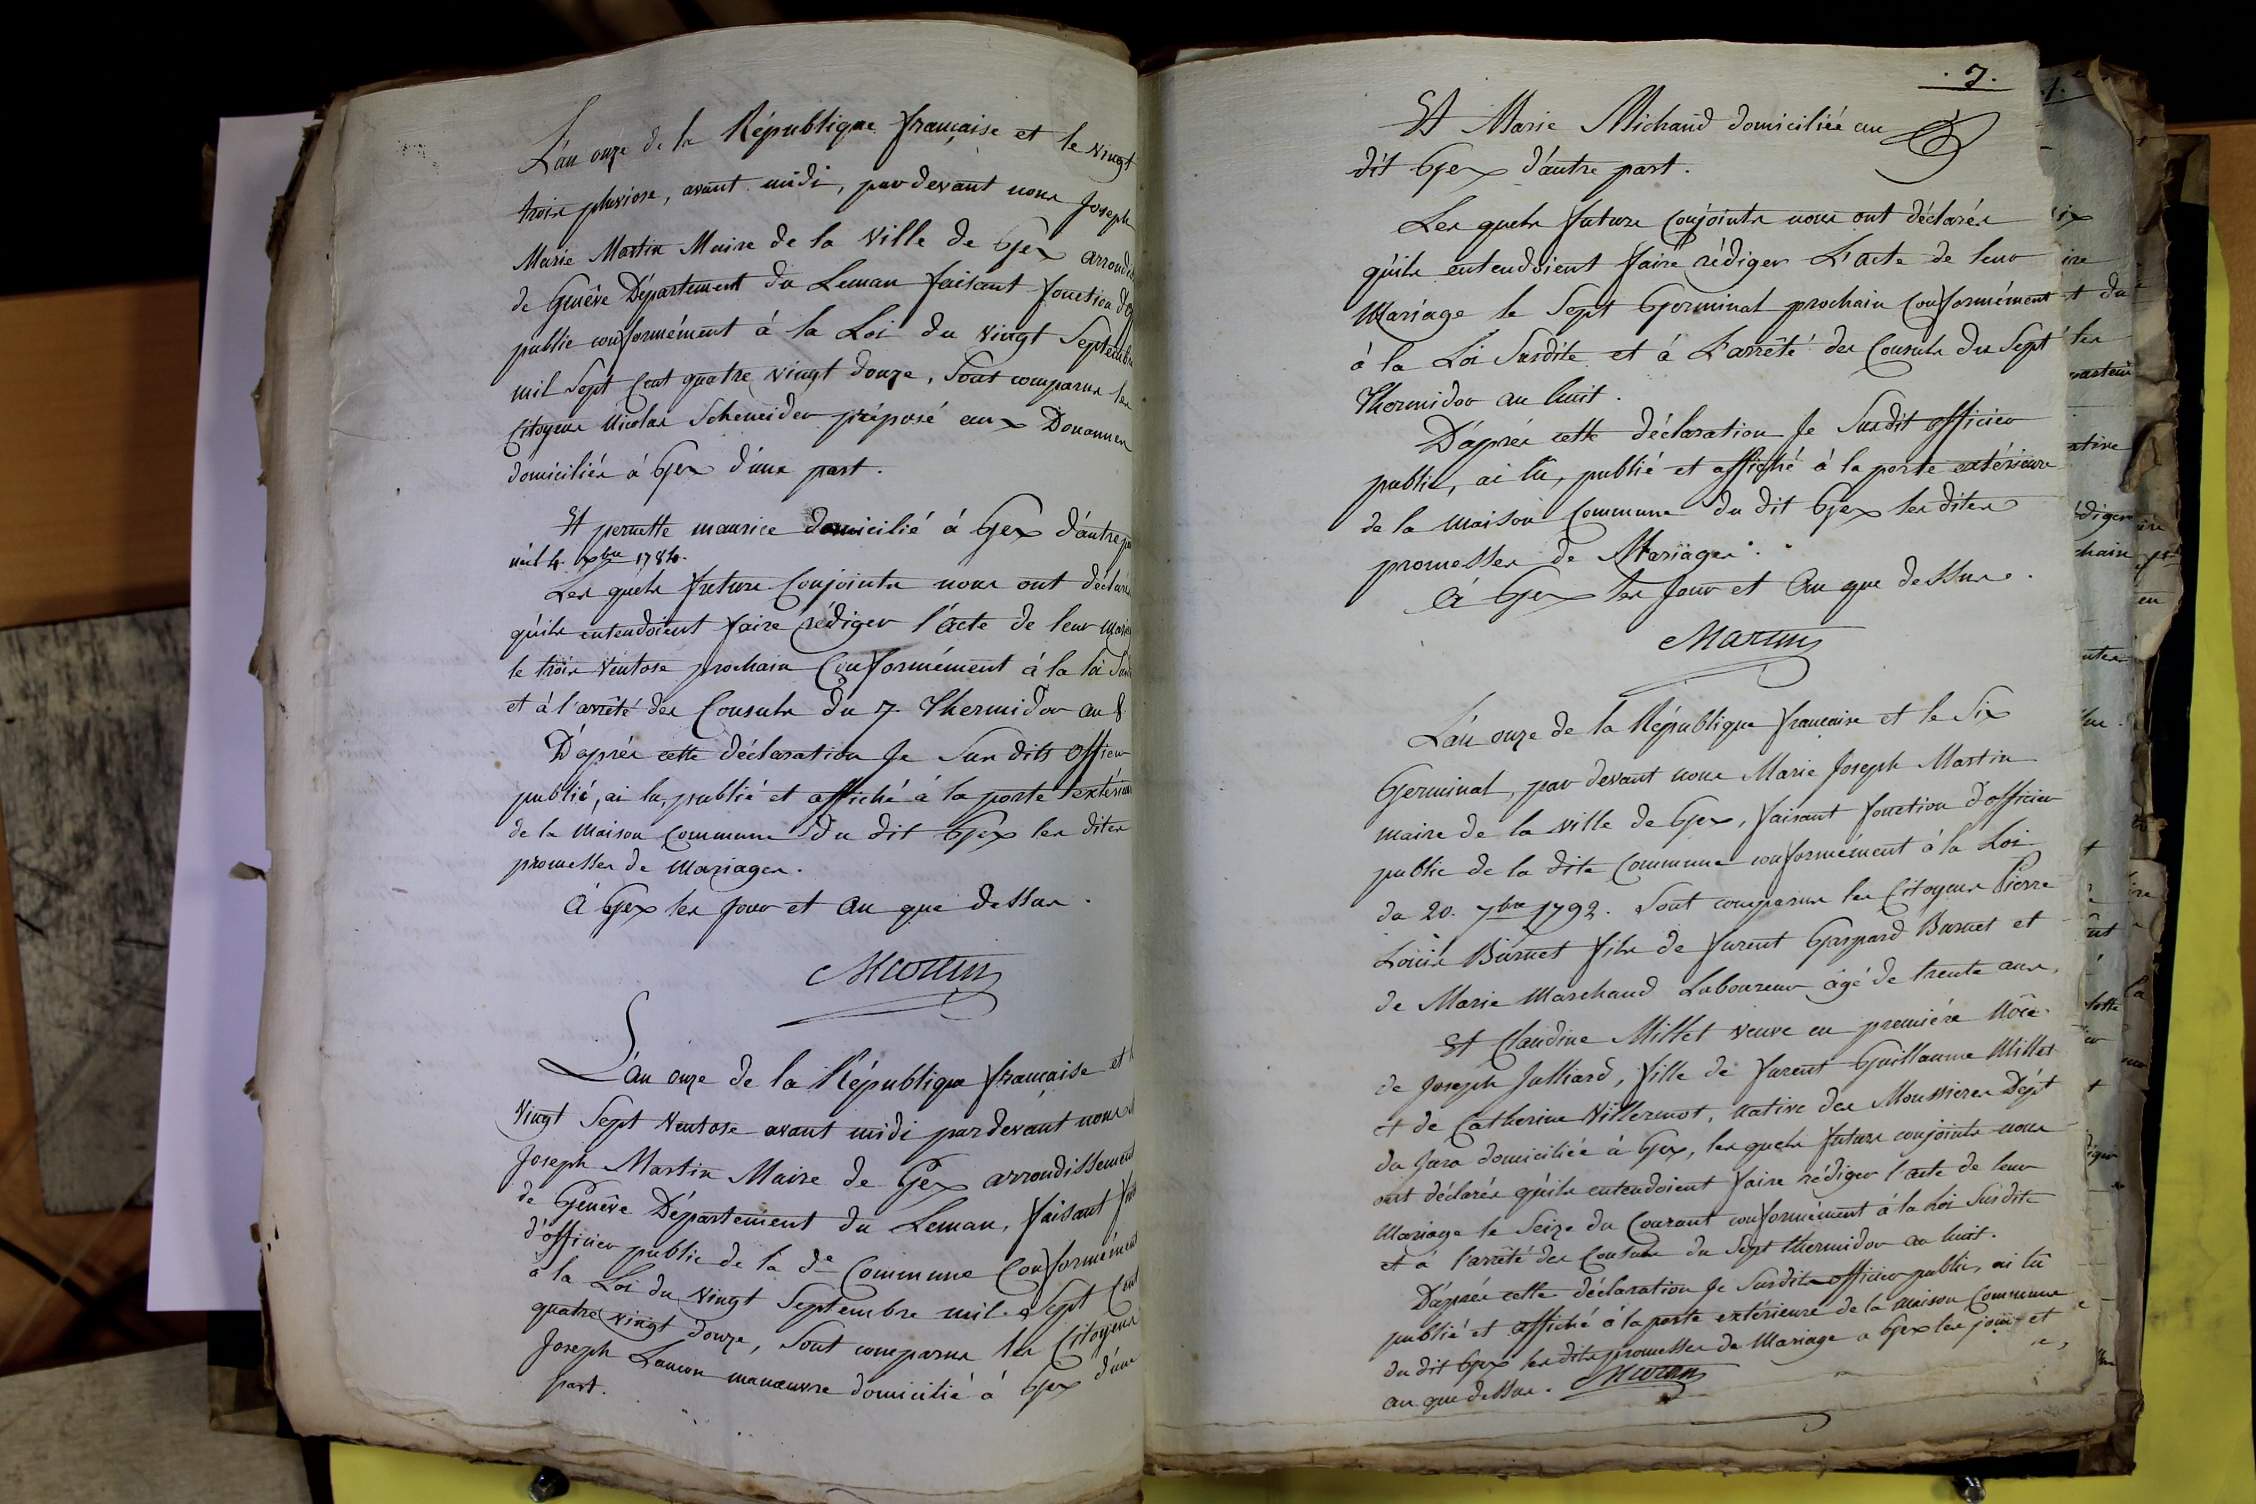 L'an onze de la République française et le vingt
trois pluviose, avant midi, par devant nous Joseph
Marie Martin Maire de la Ville de Gex arrondis
de Genêve Département du Leman faisant fonction d'of
public conformément à la Loi du vingt Septembre
mil Sept Cent quatre vingt douze, Sont comparus les
Citoyens Nicolas Schneider préposé aux Douannes
domiciliés à Gex d'une part.
Et pernette maurice domicilié à Gex d'autre pa
née le 4. xbre 1784.
Les quels futurs Conjoints nous ont déclaré
qu'ils entendoient faire rédiger l'acte de leur maria
le trois Ventose prochain Conformément à la loi Sus
et à l'arrêté des Consuls du 7. Thermidor an 8
D'après cette déclaration Je Sus dits officier
publié, ai lu, publié et affiché à la porte extérieure
de la Maison Commune du dit Gex les dites
promesses de Mariages.
à Gex les Jour et an que dessus.
Martin
L'an onze de la République française et l
Vingt Sept Ventose avant midi pardevant nous
Joseph Martin Maire de Gex arrondissement
de Genêve Département du Leman, faisant fon
d'officier public de la de Commune Conformément
à la Loi du Vingt Septembre mil Sept Cent
quatre vingt douze, Sont comparus les Citoyens
Joseph Lancon manœuvre domicilié à Gex d'une
part.
. 7 .
Et Marie Michaud domiciliée au
dit Gex d'autre part.
Les quels futurs Conjoints nous ont déclarés
qu'ils entendoient faire rédiger L'acte de leur
Mariage le Sept Germinal prochain Conformément
à la Loi Susdite et à L'arrêté des Consuls du Sept
Thermidor an huit.
D'après cette déclaration Je Susdit officier
public, ai lû, publié et affiché à la porte extérieure
de la Maison Commune du dit Gex les dites
promesses de Mariages.
à Gex les Jour et an que dessus.
Martin
L'an onze de la République française et le Six
Germinal, par devant nous Marie Joseph Martin
maire de la ville de Gex, faisant fonction d'officier
public de la dite Commune conformément à la Loi
du 20. 7bre 1792. Sont comparus les Citoyens Pierre
Louis Burnet fils de furent Gaspard Burnet et
de Marie Marchand Laboureur âgé de trente ans,
Et Claudine Millet veuve en première Nôce
de Joseph Julliard, fille de furent Guillaume Millet
et de Catherine Villermot, native des Moussieres Dépt
du Jura domiciliée à Gex, les quels futurs conjoints nous
ont déclarés qu'ils entendoient faire rédiger l'acte de leur
Mariage le Seize du Courant conformément à la Loi Susdite
et à l'arrêté des Consuls du Sept thermidor an huit.
D'après cette déclaration Je Susdits officier public, ai lû
publié et affiché à la porte extérieure de la maison Commune
du dit Gex les dites promesses de Mariage a Gex les jour et
an que dessus. Martin